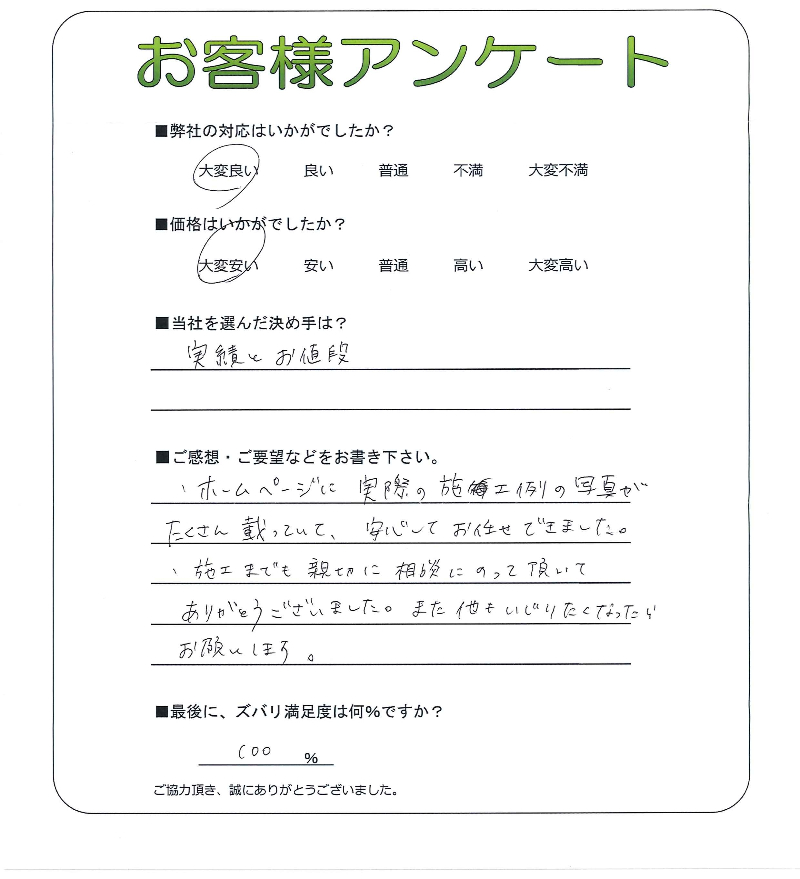 お客様アンケート
■弊社の対応はいかがでしたか？
大変良い 良い 普通 不満 大変不満
■価格はいかがでしたか？
大変安い 安い 普通 高い 大変高い
■当社を選んだ決め手は？
実績と お値段
■ご感想・ご要望などをお書き下さい。
、ホームページに 実際の 施工例の 写真が
たくさん 載っていて、 安心して お任せ できました。
、施工までも 親切に 相談に のって 頂いて
ありがとうございました。また 他も いじりたくなったら
お願いします。
■最後に、ズバリ満足度は何％ですか？
100 ％
ご協力頂き、誠にありがとうございました。